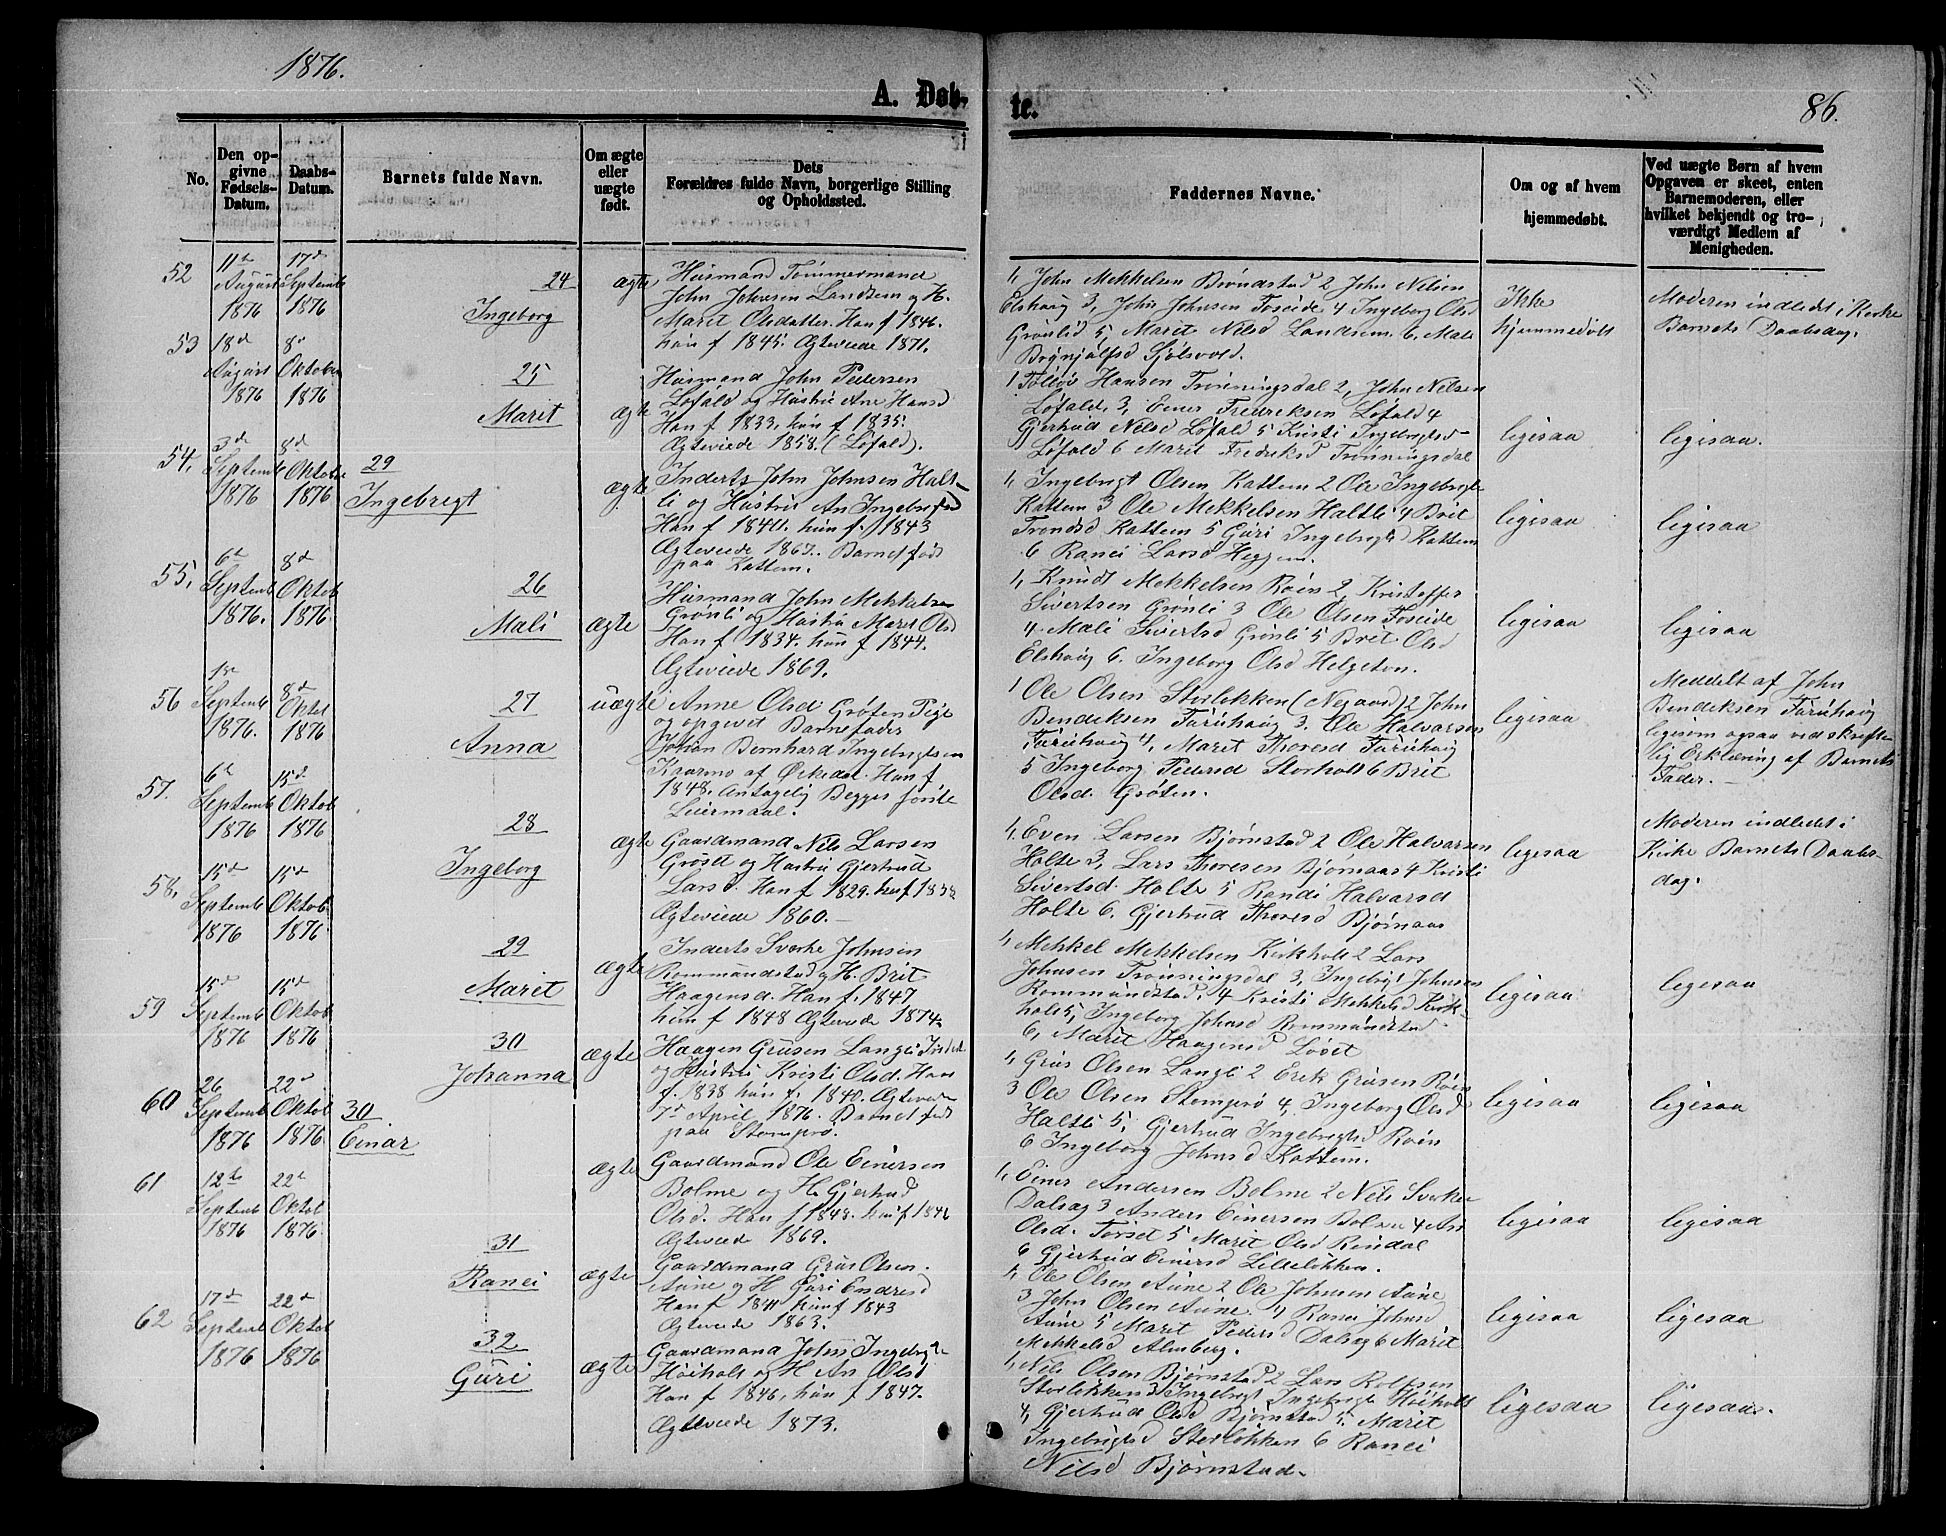 1876.
A. Døb-
te.
86.
No.
Den op-
givne
Fødsels-
Datum.
Daabs-
Datum.
Barnets fulde Navn.
Om ægte
eller
uægte
født.
Dets
Forældres fulde Navn, borgerlige Stilling
og Opholdssted.
Faddernes Navne.
Om og af hvem
hjemmedøbt.
Ved uægte Børn af hvem
Opgaven er skeet, enten
Barnemoderen, eller
hvilket bekjendt og tro-
værdigt Medlem af
Menigheden.
52
11te
August
1876
17de
Septemb
1876
24
Ingeborg
ægte
Husmand Tømmermand
John Johnsen Landsem og H.
Maret Olsdatter. Han f 1846.
hun f 1845. Ægteviede 1871.
1, John Mekkelsen Brøndstad 2 John Nilsen
Elshaug 3, John Johnsen Foseide 4 Ingeborg Olsd
Grønlid 5, Marit Nilsd Landsem 6, Mali
Brynjulfsd Sjølsvold.
Ikke
hjemmedøbt
Moderen indledt i Kirke
Barnets Daabsdag.
53
18de
August
1876
8de
Oktober
1876
25
Marit
ægte
Husmand John Pedersen
Løfald og Hustru Ane Hansd
Han f 1833, hun f 1835.
Ægteviede 1858. (Løfald).
1 Hansen Trønningsdal 2, John Nilsen
Løfald, 3, Einer Fredriksen Løfald 4
Gjertrud Nilsd Løfald 5 Kristi Ingebrigtsd
Løfald 6 Marit Fredriksd Trønningsdal
ligesaa
ligesaa.
54,
3de
Septemb
1876
8de
Oktober
1876
29
Ingebrigt
ægte
Inderts John Johnsen Halt-
li og Hustru An Ingebrigtsd
Han f 1840. hun f. 1843
Ægteviede 1867. Barnet født
paa Kattem.
1, Ingebrigt Olsen Kattem 2 Ole Ingebrigts
Kattem 3 Ole Mekkelsen Haltli 4 Brit
Trondsd Kattem 5 Guri Ingebrigtsd Kattem
6 Ranei Larsd Heggem.
ligesaa
ligesaa
55,
6te
Septemb
1876.
8de
Oktob
1876
26
Mali
ægte
Husmand John Mekkelsen
Grønli og Hustru Maret Olsd
Han f 1834. hun f 1844.
Ægteviede 1869.
1, Knudt Mekkelsen Røen 2, Kristoffer
Sivertsen Grønli 3 Ole Olsen Foseide
4 Mali Sivertsd Grønli 5 Brit Olsd
Elshaug 6. Ingeborg Olsd Helgeton.
ligesaa
ligesaa
56
1ste
Septemb
1876.
8de
Oktob
1876
27
Anna
uægte
Anne Olsd Grøten Pige
og opgivet Barnefader
Johan Bernhard Ingebrigtsen
Kaarmo af Ørkedal. Han f
1848. Antagelig Begges første
Leiermaal.
1 Ole Olsen Storløkken (Negaard) 2 John
Bendiksen Furuhaug 3, Ole Halvarsen
Furuhaug 4, Maret Thoresd Furuhaug
5 Ingeborg Pedersd Storholt 6 Brit
Olsd. Grøten.
ligesaa
Meddelt af John
Bendiksen Furuhaug
ligesom ogsaa ved skrift-
lig Erklæring af Barnets
Fader.
57.
6te
Septemb
1876
15de
Oktob
1876
28
Ingeborg
ægte
Gaardmand Nils Larsen
Grøset og Hustru Gjertrud
Larsd. Han f 1829. hun f 1838
Ægteviede 1860.
1, Even Larsen Bjørnstad 2 Ole Halvarsen
Holte 3, Lars Thoresen Bjørnaas 4 Kristi
Sivertsd. Holte 5 Randi Halvarsd
Holte 6. Gjertrud Thoresd Bjørnaas
ligesaa
Moderen indledet i
Kirke Barnets Daabs-
dag.
58,
15de
Septemb
1876
15de
Oktob.
1876
29
Marit
ægte
Inderts Sverke Johnsen
Rommundstad og H. Brit
Haagensd. Han f. 1847
hun f 1848 Ægteviede 1874
1, Mekkel Mekkelsen Kirkholt 2 Lars
Johnsen Trønningsdal 3, Ingebrigt Johnsen
Rommundstad, 4 Kristi Mekkelsd Kirk-
holt 5, Ingeborg Johnsd Rommundstad
6, Marit Haagensd Løset
ligesaa
ligesaa
59
15de
Septemb
1876
15de
Oktob
1876
30
Johanna
ægte
Haagen Grusen Langli
og Hustru Kristi Olsd. Han
f. 1838 hun f. 1840. Ægteviede
7de April 1876. Barnet født
paa Stomprø.
1, Grus Olsen Langli 2 Erik Grusen Røen
3 Ole Olsen Stomprø 4, Ingeborg Olsd
Haltli 5, Gjertrud Ingebrigtsd Røen
6 Ingeborg Johnsd Kattem.
ligesaa
ligesaa
60
26
Septemb
1876
22de
Oktob
1876
30
Einar
ægte
Gaardmand Ole Einersen
Bolme og H. Gjertrud
Olsd. Han f 1848. hun f 1846
Ægteviede 1869.
1, Einer Andersen Bolme 2 Nils Sverke
Dalsag 3 Anders Einersen Bolme 4 An
Olsd. Torset 5 Maret Olsd Rindal
6 Gjertrud Einersd Lilleløkken.
ligesaa
ligesaa
61
12te
Septemb
1876
22de
Oktob
1876
31
Ranei
ægte
Gaardmand Grus Olsen
Aune og H Guri Endresd
Han f 1841 hun f 1843
Ægteviede 1863.
1, Ole Olsen Aune 2 Ole Johnsen Aune
3 John Olsen Aune 4 Ranei Johnsd
Aune 5 Marit Pedersd Dalsag 6 Marit
Mekkelsd Almberg.
ligesaa
ligesaa
62
17de
Septemb
1876
22de
Oktob
1876
32
Guri
ægte
Gaardmand John Ingebrigts
Høiholt og H An Olsd
Han f 1846, hun f 1847.
Ægteviede 1873.
1, Nils Olsen Bjørnstad 2 Lars Rolfsen
Storløkken 3 Ingebrigt Ingebrigts Høiholt
4, Gjertrud Olsd Bjørnstad 5 Marit
Ingebrigtsd Storløkken 6 Ranei
Nilsd Bjørnstad.
ligesaa
ligesaa.